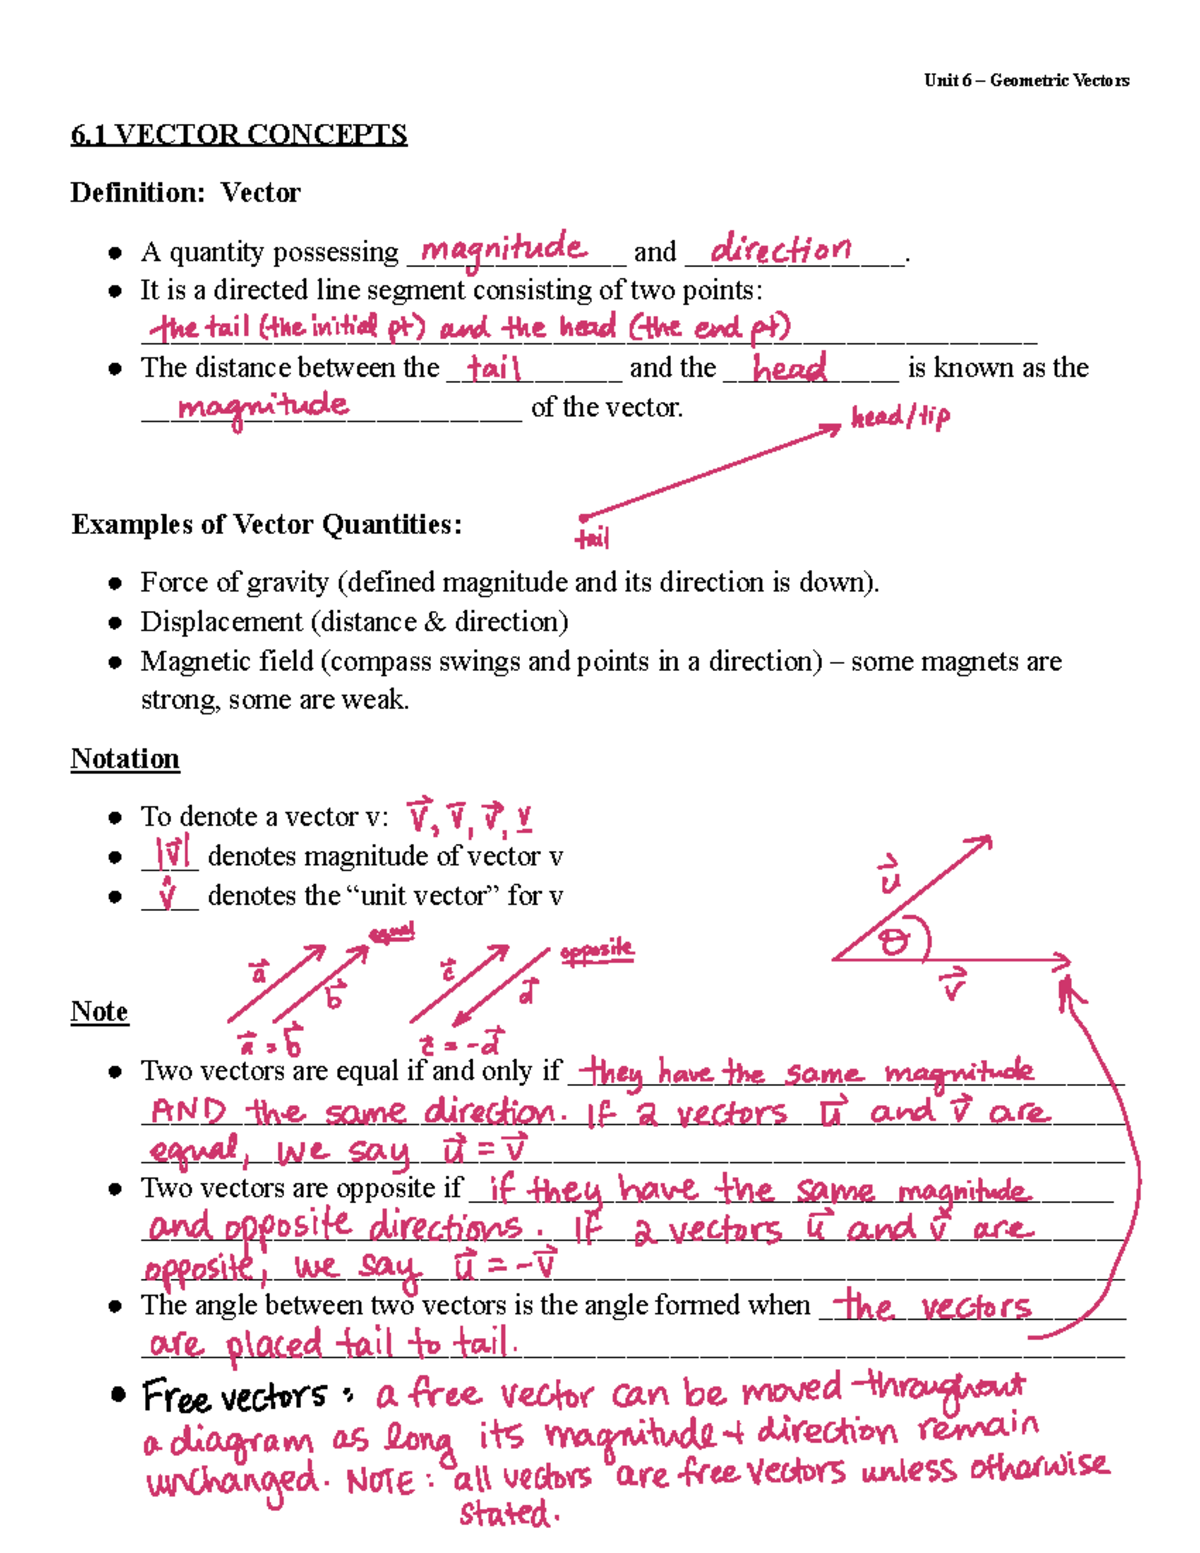 Unit 6 – Geometric Vectors
6.1 VECTOR CONCEPTS
Definition: Vector
● A quantity possessing magnitude and direction.
● It is a directed line segment consisting of two points:
the tail (the initial pt) and the head (the end pt)
● The distance between the tail and the head is known as the
magnitude of the vector.
head/tip
tail
Examples of Vector Quantities:
● Force of gravity (defined magnitude and its direction is down).
● Displacement (distance & direction)
● Magnetic field (compass swings and points in a direction) – some magnets are
strong, some are weak.
Notation
● To denote a vector v: v⃗, v̅, v⃗, v̲
● |v⃗| denotes magnitude of vector v
● v̂ denotes the “unit vector” for v
u⃗
θ
v⃗
equal
a⃗
b⃗
a⃗ = b⃗
opposite
c⃗
d⃗
c⃗ = -d⃗
Note
● Two vectors are equal if and only if they have the same magnitude
AND the same direction. If 2 vectors u⃗ and v⃗ are
equal, we say u⃗ = v⃗
● Two vectors are opposite if if they have the same magnitude
and opposite directions. If 2 vectors u⃗ and v⃗ are
opposite, we say u⃗ = -v⃗
● The angle between two vectors is the angle formed when the vectors
are placed tail to tail.
● Free vectors: a free vector can be moved throughout
a diagram as long its magnitude + direction remain
unchanged. NOTE: all vectors are free vectors unless otherwise
stated.